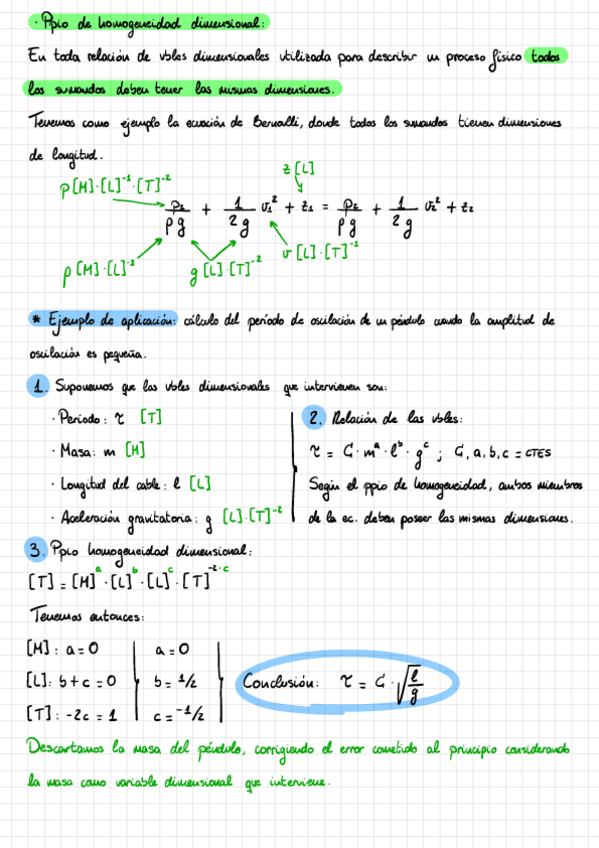 · Ppio de homogeneidad dimensional:
En toda relación de vbles dimensionales utilizada para describir un proceso físico todos
los sumandos deben tener las mismas dimensiones.
Tenemos como ejemplo la ecuación de Bernoulli, donde todos los sumandos tienen dimensiones
de longitud.
z [L]
p [M]·[L]⁻¹·[T]⁻²
p₁/ρg + 1/2g v₁² + z₁ = p₂/ρg + 1/2g v₂² + z₂
ρ [M]·[L]⁻³ g [L]·[T]⁻² v [L]·[T]⁻¹
* Ejemplo de aplicación: cálculo del período de oscilación de un péndulo cuando la amplitud de
oscilación es pequeña.
1. Suponemos que las vbles dimensionales que intervienen son:
· Período: τ [T]
· Masa: m [M]
· Longitud del cable: l [L]
· Aceleración gravitatoria: g [L]·[T]⁻²
2. Relación de las vbles:
τ = C · mᵃ · lᵇ · gᶜ ; C, a, b, c = CTES
Según el ppio de homogeneidad, ambos miembros
de la ec. deben poseer las mismas dimensiones.
3. Ppio homogeneidad dimensional:
[T] = [M]ᵃ · [L]ᵇ · [L]ᶜ · [T]⁻²·ᶜ
Tenemos entonces:
[M]: a = 0 a = 0
[L]: b + c = 0 b = 1/2
[T]: -2c = 1 c = -1/2
Conclusión: τ = C · √(l/g)
Descartamos la masa del péndulo, corrigiendo el error cometido al principio considerando
la masa como variable dimensional que interviene.